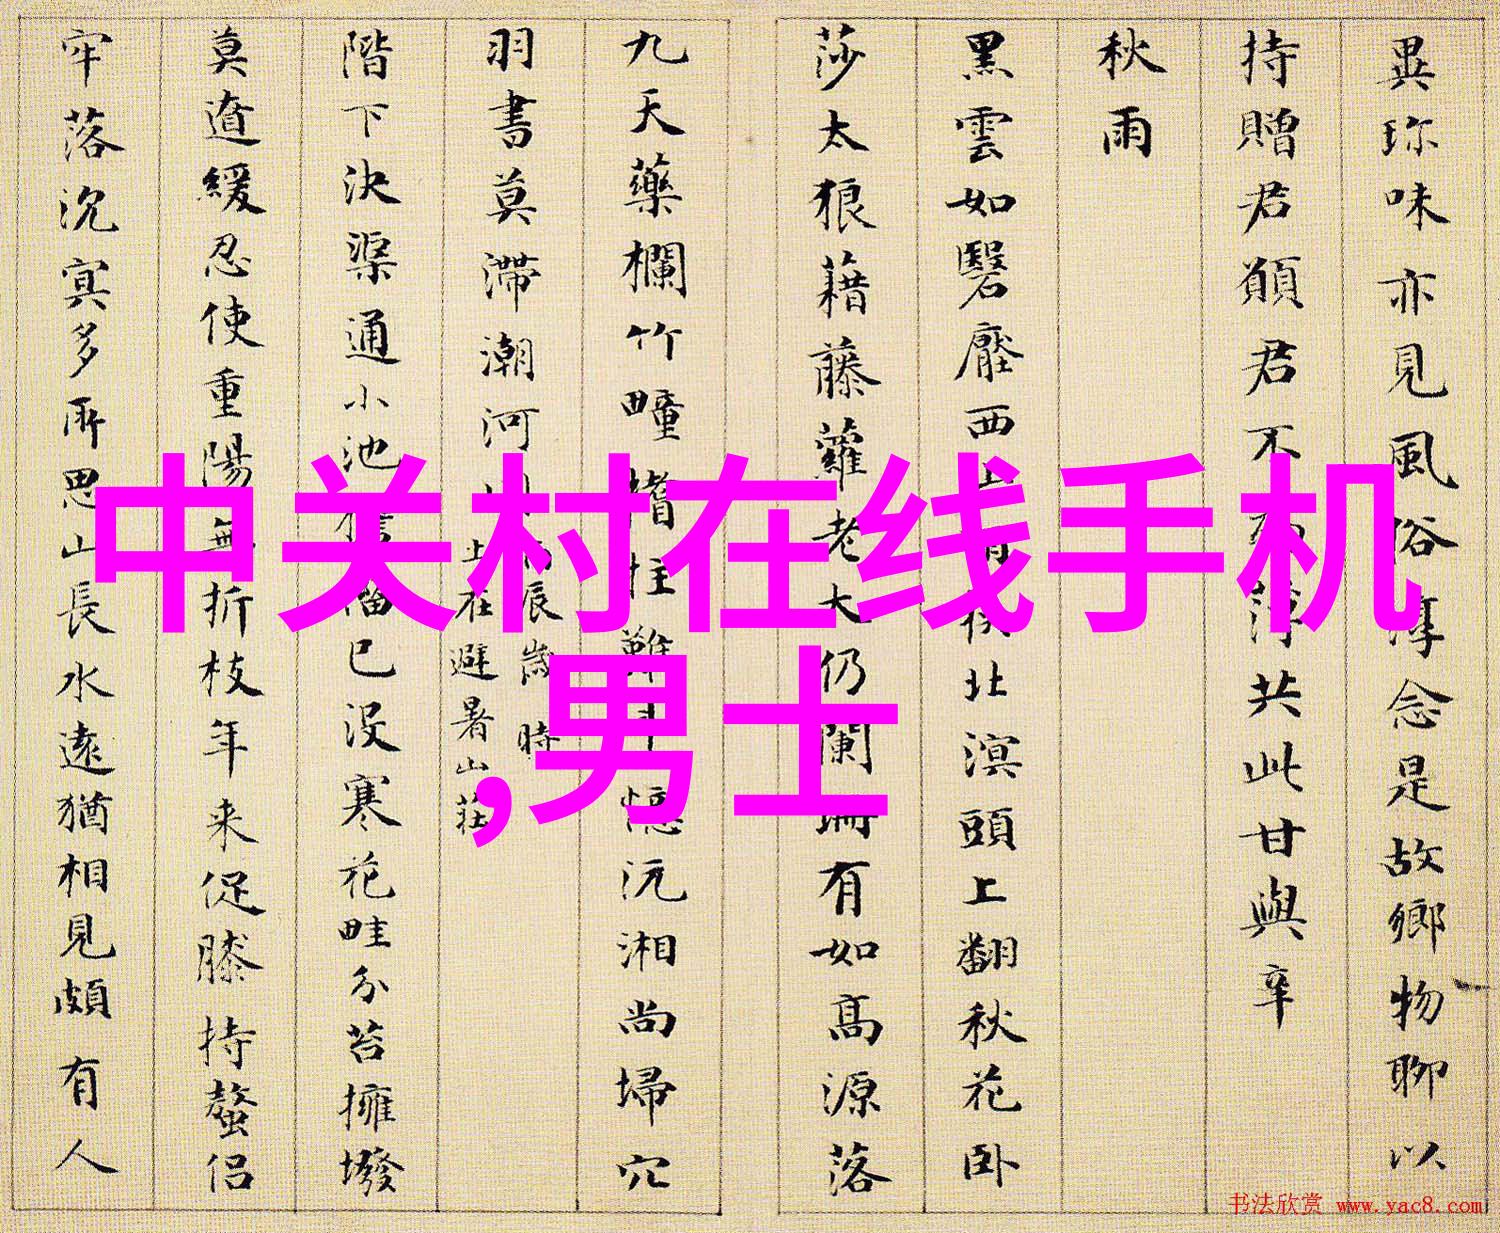 異珎味亦見風俗淳念是故鄉物聊以
持贈君願君不
共此甘與辛
秋雨
黑雲如翳壓西
北溟頭上翻秋花卧
莎太狼藉藤蘿老大仍闌珊有如高源落
九天藥欄竹疃
憶沅湘尚埽穴
羽書莫滯潮河
丙辰歲時
上在避暑山莊
階下決渠通小池
已沒寒花畦分苔擁墢
莫遣緩忍使重陽無折枝年来促膝持螯侣
牢落沉冥多所思山長水遠猶相見頗有人
中关村在线手机
,男士
书法欣赏 www.yac8.com